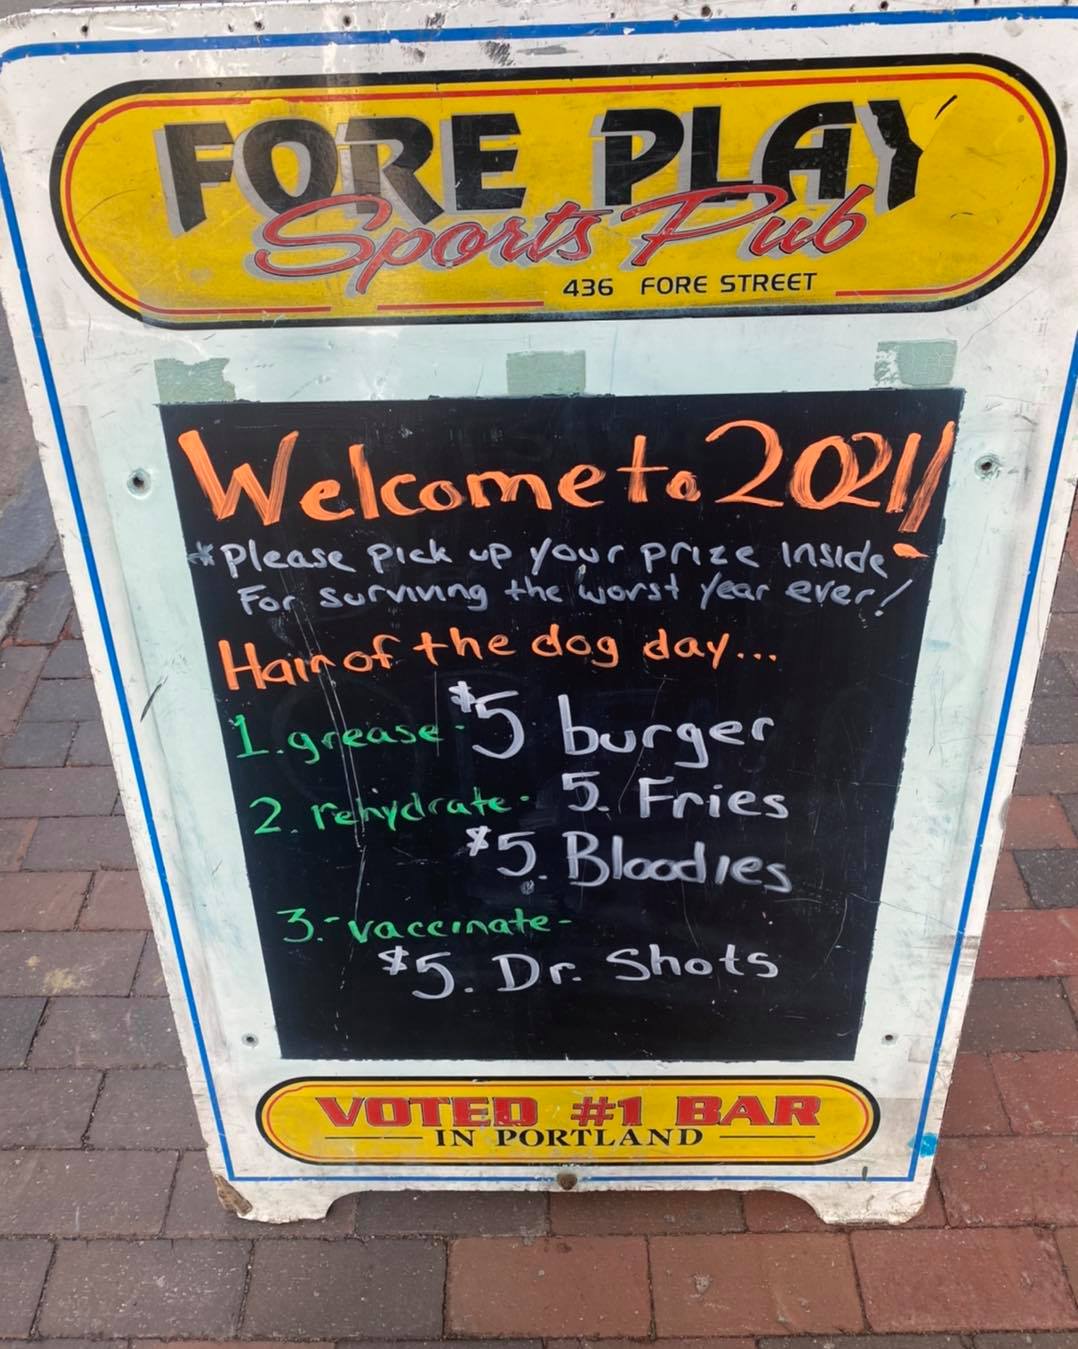 FORE PLAY
Sports Pub
436 FORE STREET
Welcome to 2021!
*Please pick up your prize inside
For surviving the worst year ever!
Hair of the dog day...
1. grease - $5 burger
2. rehydrate - 5. Fries
$5. Bloodies
3. - vaccinate -
$5. Dr. Shots
VOTED #1 BAR
IN PORTLAND